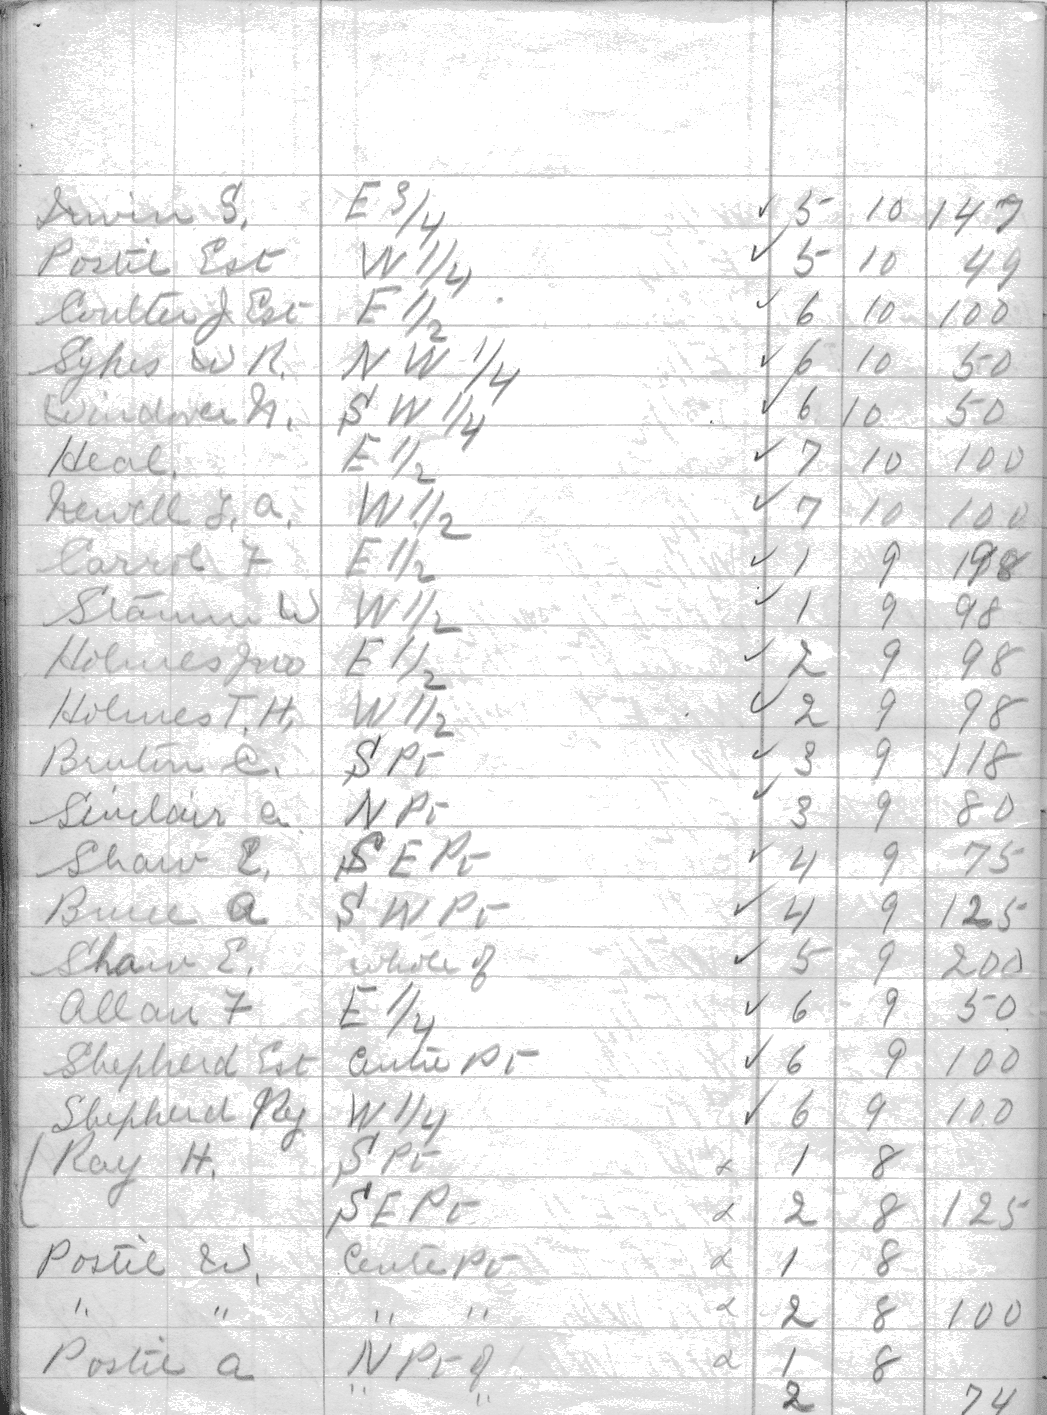 Irwin S. E 3/4 ✓ 5 10 147
Postil Est W 1/4 ✓ 5 10 49
Coulter J Est E 1/2 ✓ 6 10 100
Sykes W R. N W 1/4 ✓ 6 10 50
Windover N. S W 1/4 ✓ 6 10 50
Heal. E 1/2 ✓ 7 10 100
Newell J. a. W 1/2 ✓ 7 10 100
Carrol F E 1/2 ✓ 1 9 198
Stamm W W 1/2 ✓ 1 9 98
Holmes Jno E 1/2 ✓ 2 9 98
Holmes T. H. W 1/2 ✓ 2 9 98
Bruton C. S Pt ✓ 3 9 118
Sinclair a. N Pt ✓ 3 9 80
Shaw E. S E Pt ✓ 4 9 75
Bruce A S W Pt ✓ 4 9 125
Shaw E. whole of ✓ 5 9 200
Allan F E 1/4 ✓ 6 9 50
Shepherd Est Centre Pt ✓ 6 9 100
Shepherd Ry W 1/4 ✓ 6 9 100
Ray H. S Pt 1 8
S E Pt 2 8 125
Postil W. Centre Pt 1 8
" " " " 2 8 100
Postil a N Pt of 1 8
" " 2 74